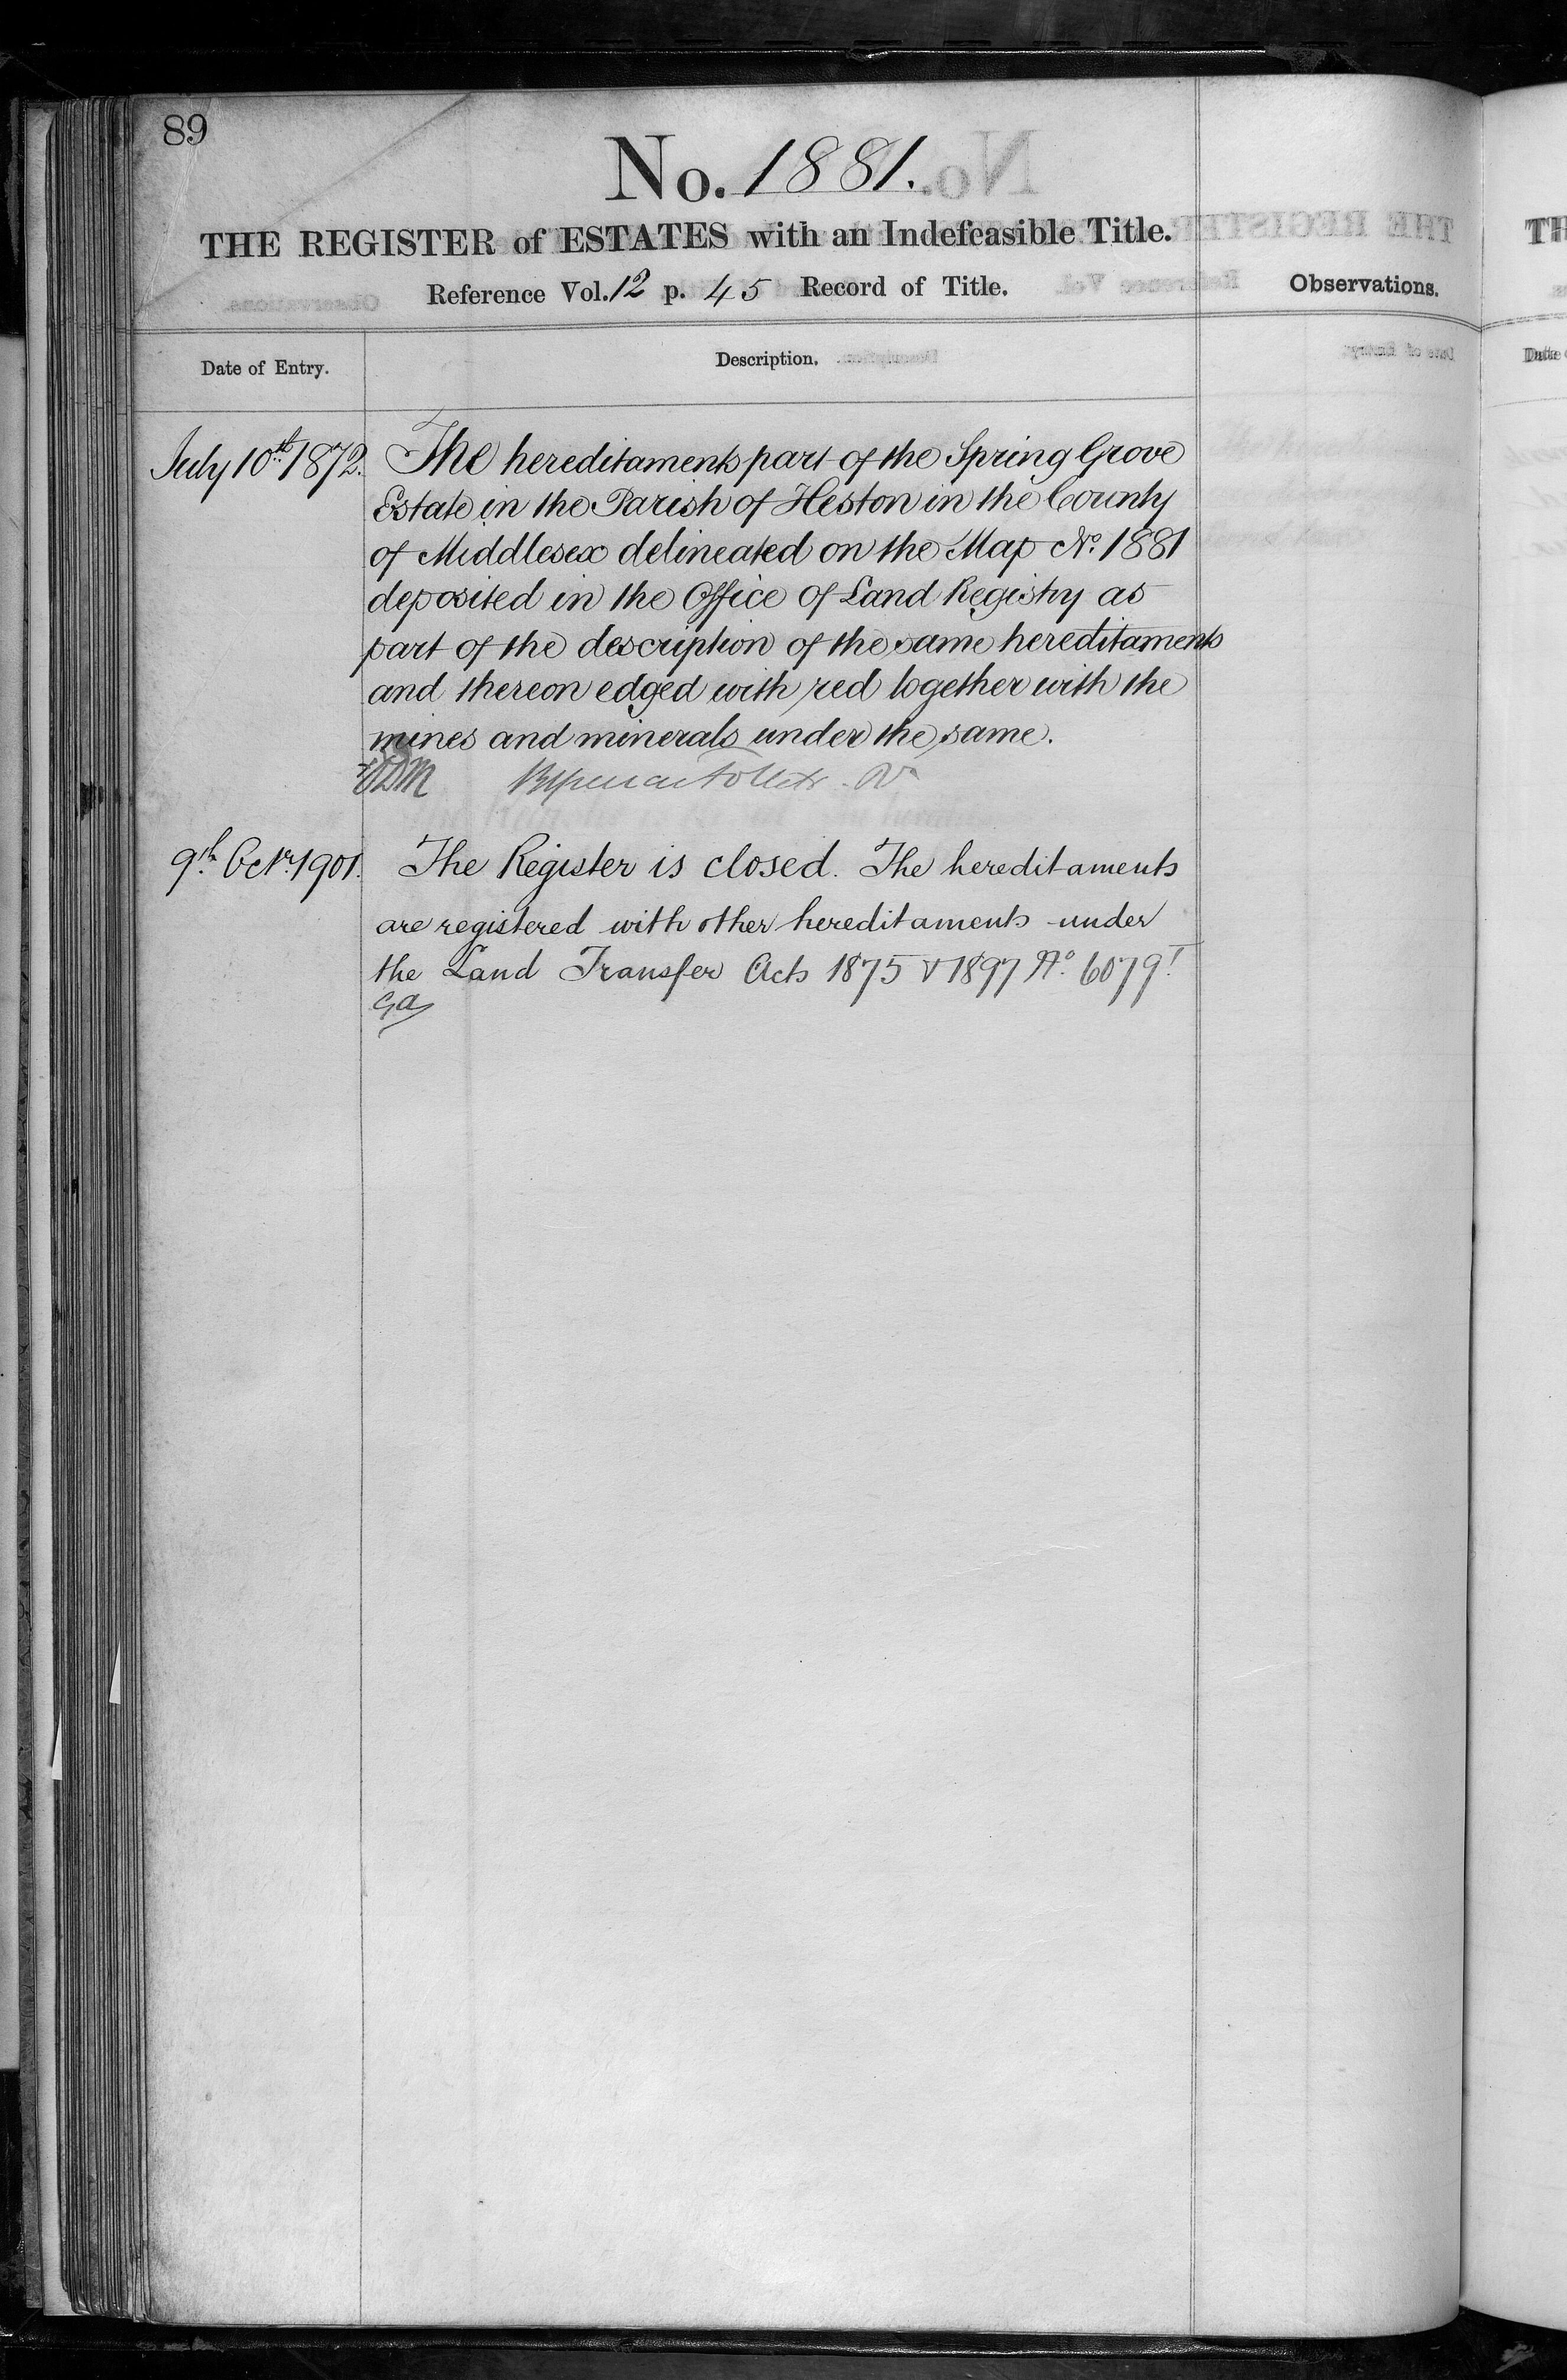 89
No. 1881.
THE REGISTER of ESTATES with an Indefeasible Title.
Reference Vol. 12 p. 45 Record of Title.
Observations.
Date of Entry.
Description.
July 10th 1872. The hereditaments part of the Spring Grove
Estate in the Parish of Heston in the County
of Middlesex delineated on the Map No. 1881
deposited in the Office of Land Registry as
part of the description of the same hereditaments
and thereon edged with red together with the
mines and minerals under the same.
9th Octr. 1901. The Register is closed. The hereditaments
are registered with other hereditaments under
the Land Transfer Acts 1875 & 1897 No. 6079